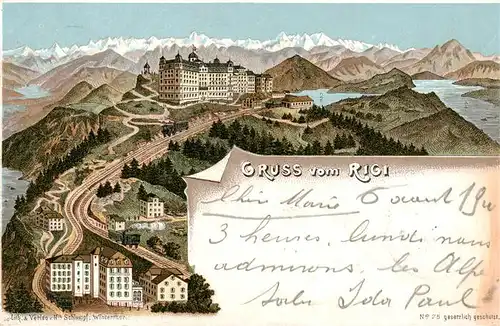 GRUSS VOM RIGI
Chère Marie 6 août
3 heures, lundi, nous
admirons, les Alpes
Jules Ida Paul
Lith. & Verlag v. H. Schlumpf, Winterthur.
No 75 gesetzlich geschützt.